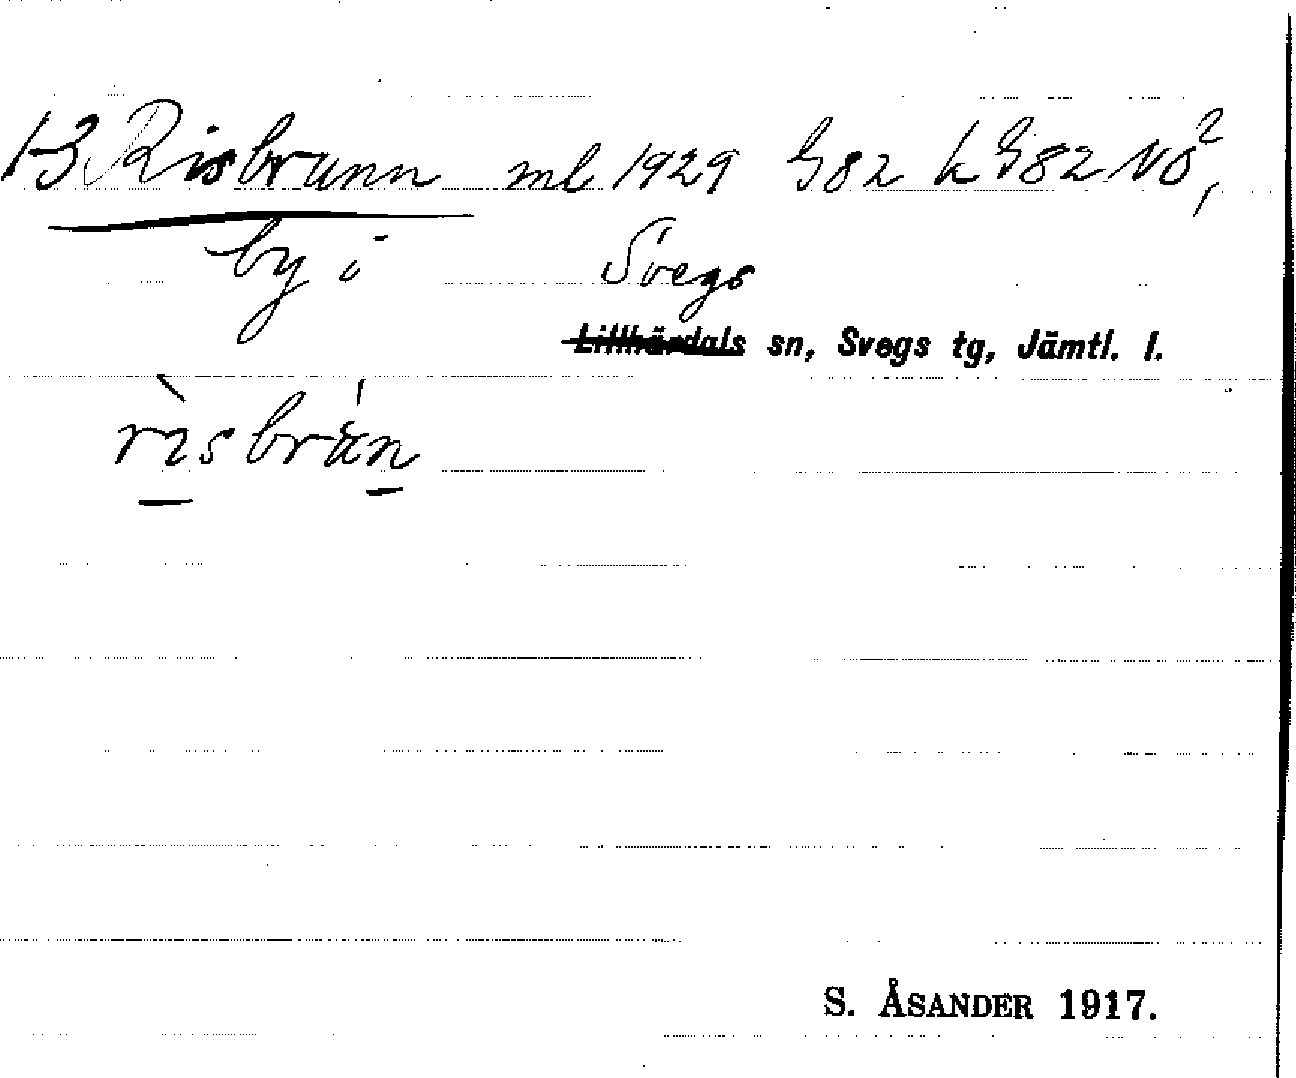 13 Risbrunn ml 1929 G82 k G82 NO²,
by i Svegs
Lillhärdals sn, Svegs tg, Jämtl. l.
rìsbrán
S. ÅSANDER 1917.